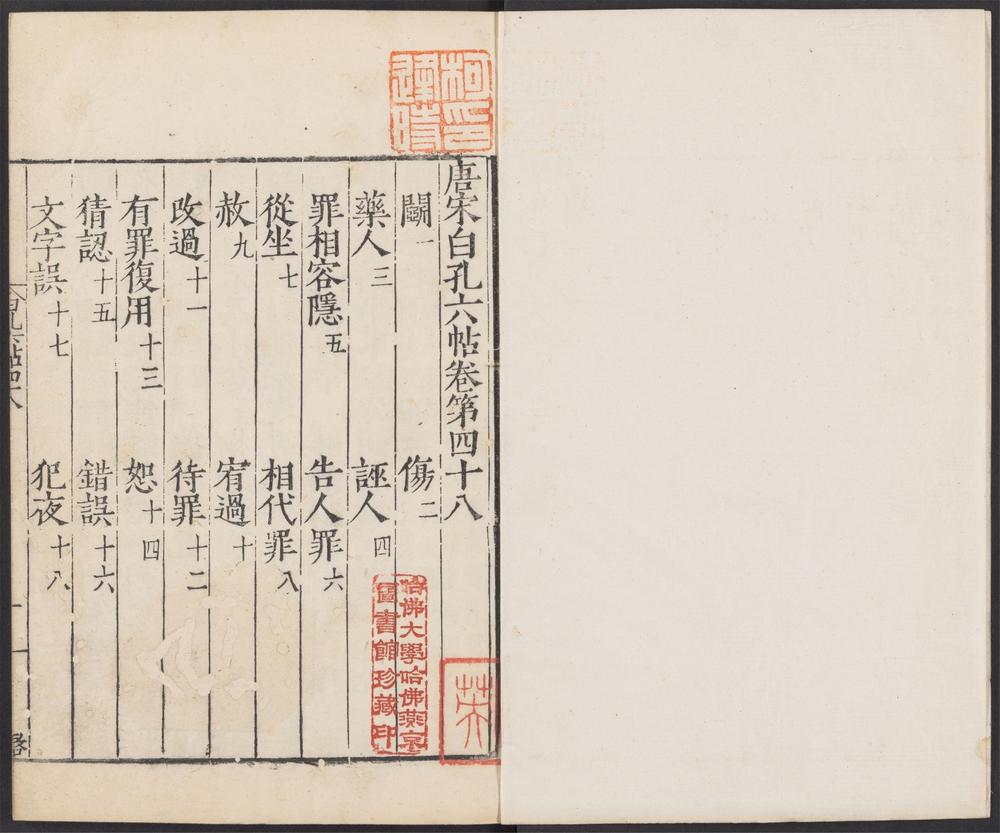 唐宋白孔六帖卷第四十八
鬭一 傷二
藥人三 誣人四
罪相容隱五 告人罪六
從坐七 相代罪八
赦九 宥過十
改過十一 待罪十二
有罪復用十三 恕十四
猜認十五 錯誤十六
文字誤十七 犯夜十八
哈佛大學哈佛燕京
圖書館珍藏印